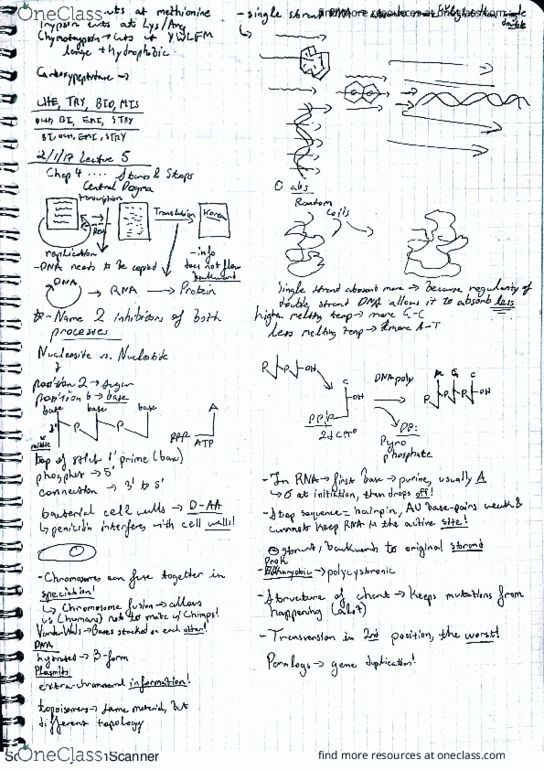 OneClass
cuts at methionine
Trypsin cuts at Lys/Arg
Chymotrypsin → Cuts at YWLFM
large + hydrophobic
Carboxypeptidase →
BI, EMI, STRY
2/1/17 Lecture 5
Chap 4 .... Starts & Stops
Central Dogma
transcription
Translation
replication
- DNA needs to be copied
- info
does not flow
backward
DNA
→ RNA → Protein
- Name 2 inhibitors of both
processes
Nucleoside vs. Nucleotide
position 2 → sugar
position 6 → base
base base base
3'
P P
A
PPP
ATP
top of stick 1' prime (base)
phosphate → 5'
connection → 3' to 5'
bacterial cell walls → D-AA
↳ penicillin interferes with cell walls!
- Chromosomes can fuse together in
speciation!
↳ Chromosome fusion → allows
us (humans) not to mate w/ Chimps!
Bases stacked on each other!
DNA
hydrated → B-form
Plasmids
extra-chromosomal information!
topoisomers → same material, but
different topology
- single strand DNA
find more resources at oneclass.com
double
O abs
Random
Coils
Single strand absorbs more → because regularity of
double strand DNA allows it to absorb less
higher melting temp → more G-C
less melting temp → more A-T
P P OH
C
OH
PPP
DNA poly
A G C
P P P OH
PP:
Pyro
phosphate
- In RNA → first base → purine, usually A
↳ σ at initiation, then drops off!
- Stop sequence = hairpin, AU base-pairs weak &
cannot keep RNA in the active site!
strand, backwards to original strand
Prok
- Eukaryotic → polycystronic
- Structure of chart → Keeps mutations from
happening (a lot)
- Transversion in 2nd position, the worst!
Paralogs → gene duplication!
OneClass
Scanner
find more resources at oneclass.com